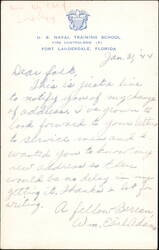 U. S. NAVAL TRAINING SCHOOL
FIRE CONTROLMEN (A)
FORT LAUDERDALE, FLORIDA
Jan 31, '44
Dear folk,
This is just a line
to notify you of my change
of address. I've grown to
look forward to your letters
to service men and I
wanted you to know my
new address so there
would be no delay in my
getting it. Thanks a lot for
writing.
A fellow Berean
Wm.